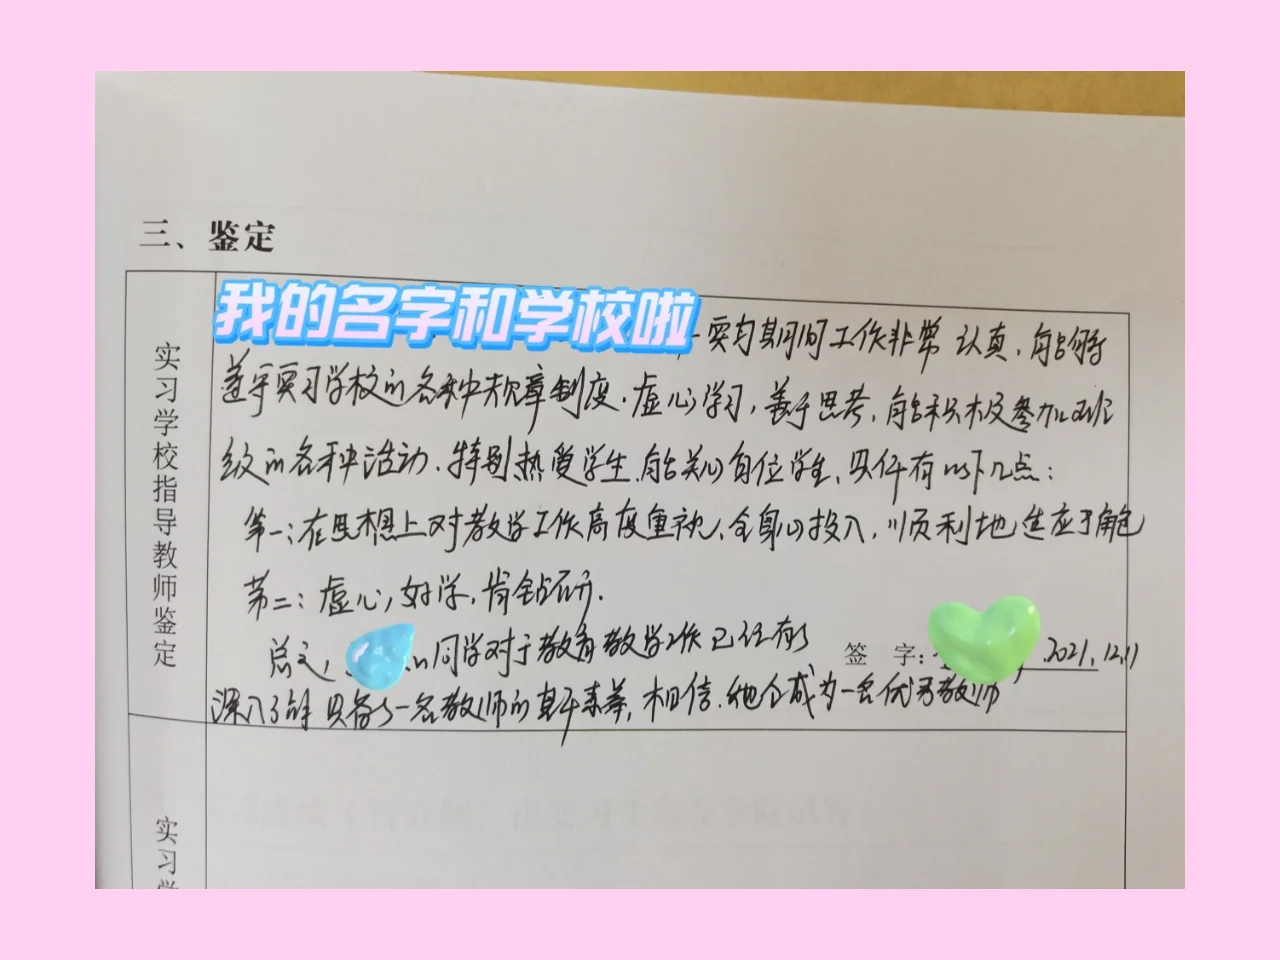 三、鉴定
实习学校指导教师鉴定
我的名字和学校啦
实习期间工作非常认真，能够
遵守实习学校的各种规章制度，虚心学习，善于思考，能积极参加班
级的各种活动，特别热爱学生，能关心每位学生，具体有以下几点：
第一：在思想上对教学工作高度重视，全身心投入，顺利地适应了角色
第二：虚心，好学，肯钻研。
总之， 同学对于教育教学工作已经有了
签 字： 2021.12.11
深入了解 具备了一名教师的基本素养，相信，她会成为一名优秀教师
实习学